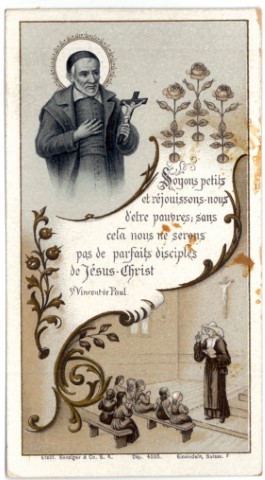 Soyons petits
et réjouissons-nous
d'etre pauvres; sans
cela nous ne serons
pas de parfaits disciples
de Jésus-Christ
St Vincent de Paul.
Etabl. Benziger & Co. S. A. Dép. Einsiedeln, Suisse.